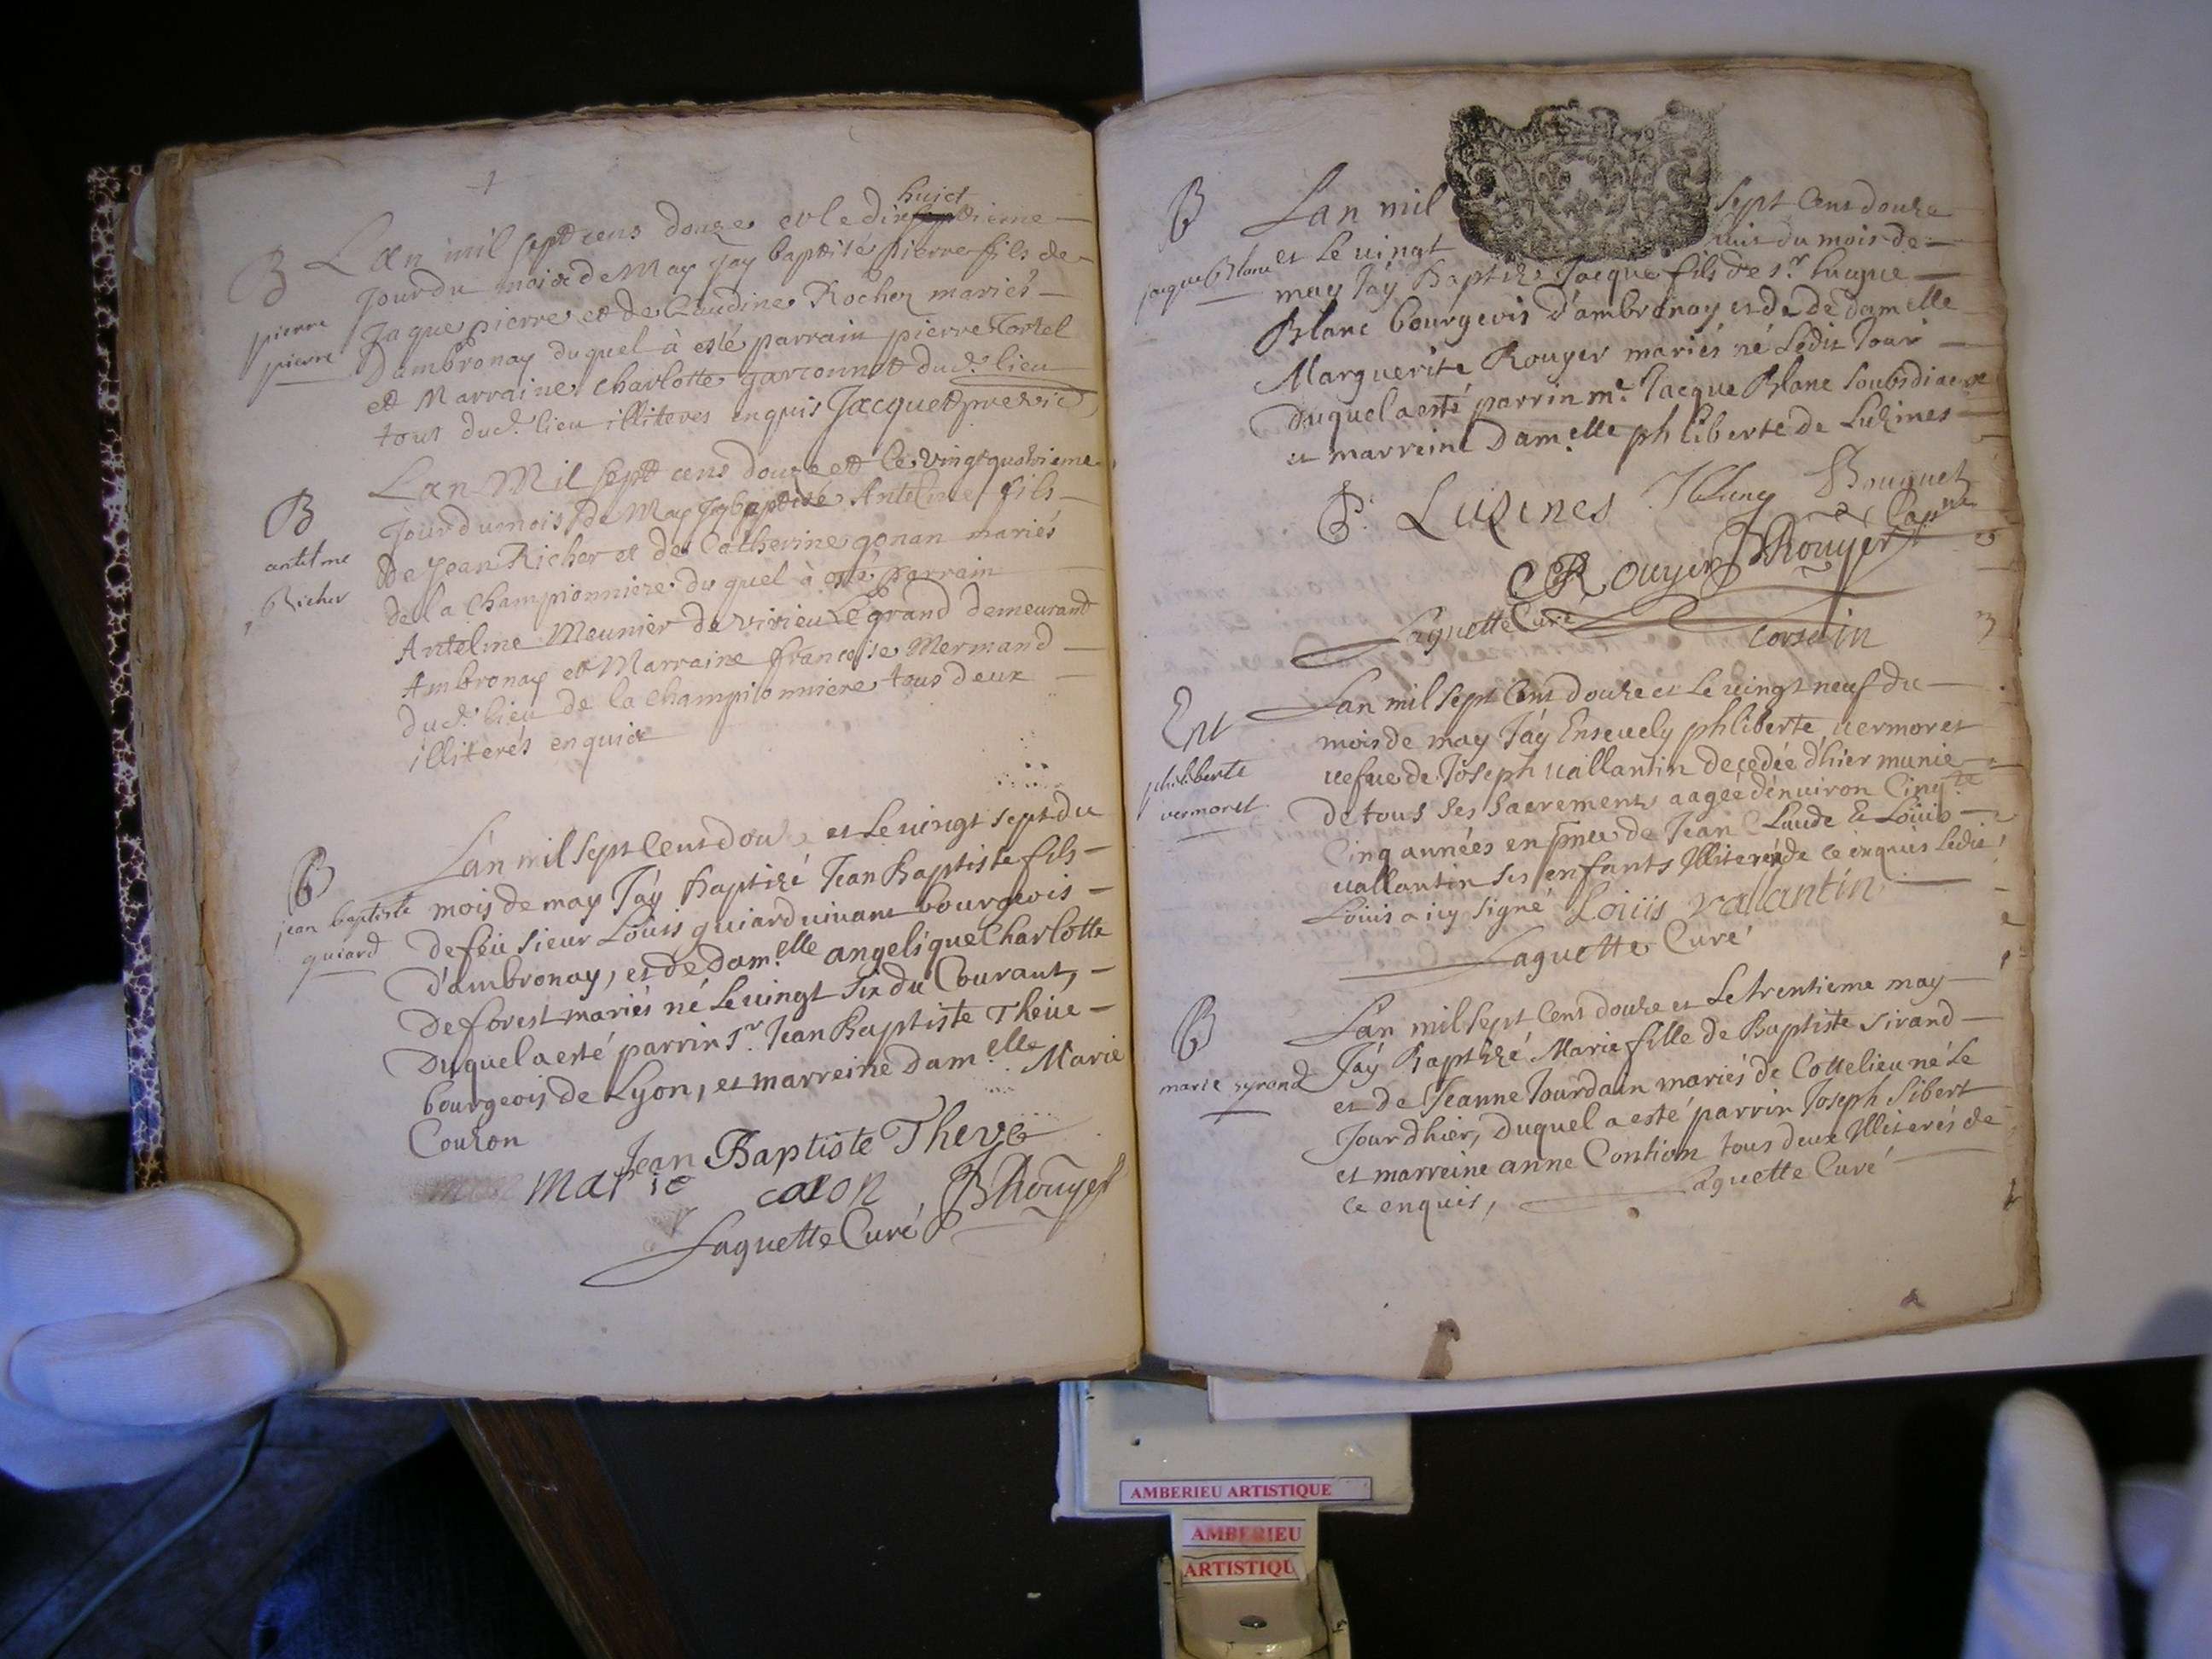 B
pierre
pierre
Lan mil sept cens douze et le dix huict ieme
jour du mois de May jay baptisé pierre fils de
Jaque pierre et de Claudine Rocher mariés
Dambronay duquel à esté parrain pierre Tortel
et Marraine Charlotte garconnet dud. lieu
tous dud. lieu illiteres enquis
B
antelme
Richer
Lan Mil sept cens douze et le vingt quatrieme
jour du mois de May jay baptisé Antelme fils
de Jean Richer et de Catherine gonan mariés
de la Championniere du quel à esté parrain
Antelme Meunier de virieu Legrand demeurant
Ambronay et Marraine francoise Mermand
dud. lieu de la Championniere tous deux
illiterés enquis
B
jean baptiste
guiard
Lán mil sept Cent douze et le vingt sept du
mois de may Jáy Baptizé Jean Baptiste fils
de feu sieur Loüis guiard vivant bourgeois
d'ambronay, et de damelle angelique Charlotte
deforest mariés né le vingt six du Courant,
Duquel a esté parrin Sr. Jean Baptiste Theve
bourgeois de Lyon, et marreine damelle Marie
Couzon
Jean Baptiste Theve
Marie
BRouyer
Laguette Curé
B
jaque Blanc
Lan mil sept Cent douze
et Le vingt huit du mois de
may Jáy Baptizé Jacque fils de Sr. hugue
Blanc bourgeois d'ambronay et de de damelle
Marguerite Rouyer mariés né Ledit Jour
Duquel a esté parrin me. Jacque Blanc soubsdiacre
et marreine Damelle phliberte de Luzines
P. Luzines Bouquet
CRouyer BRouyer
Laguette Curé
Ent
philiberte
vermoret
Lan mil sept Cent douze et Le vingt neuf du
mois de may Jáy Ensevely phliberte vermoret
vefue de Joseph vallantin decedée dhier munie
de tous ses sacrements aagée dénviron Cinqte
Cinq années en pnce de Jean Claude & Loüis
vallantin ses enfants Illiterés de ce enquis Ledit
Loüis a icy signé Loüis vallantin
Laguette Curé
B
marie syrand
Lan mil sept Cent douze et Le trentieme may
Jáy Baptizé Marie fille de Baptiste Sirand
et de Jeanne Jourdain mariés de Cottelieu né Le
Jour dhier, Duquel a esté parrin Joseph Sibert
et marreine anne Contion tous deux Illiterés de
ce enquis, Laguette Curé
AMBERIEU ARTISTIQUE
AMBERIEU
ARTISTIQU